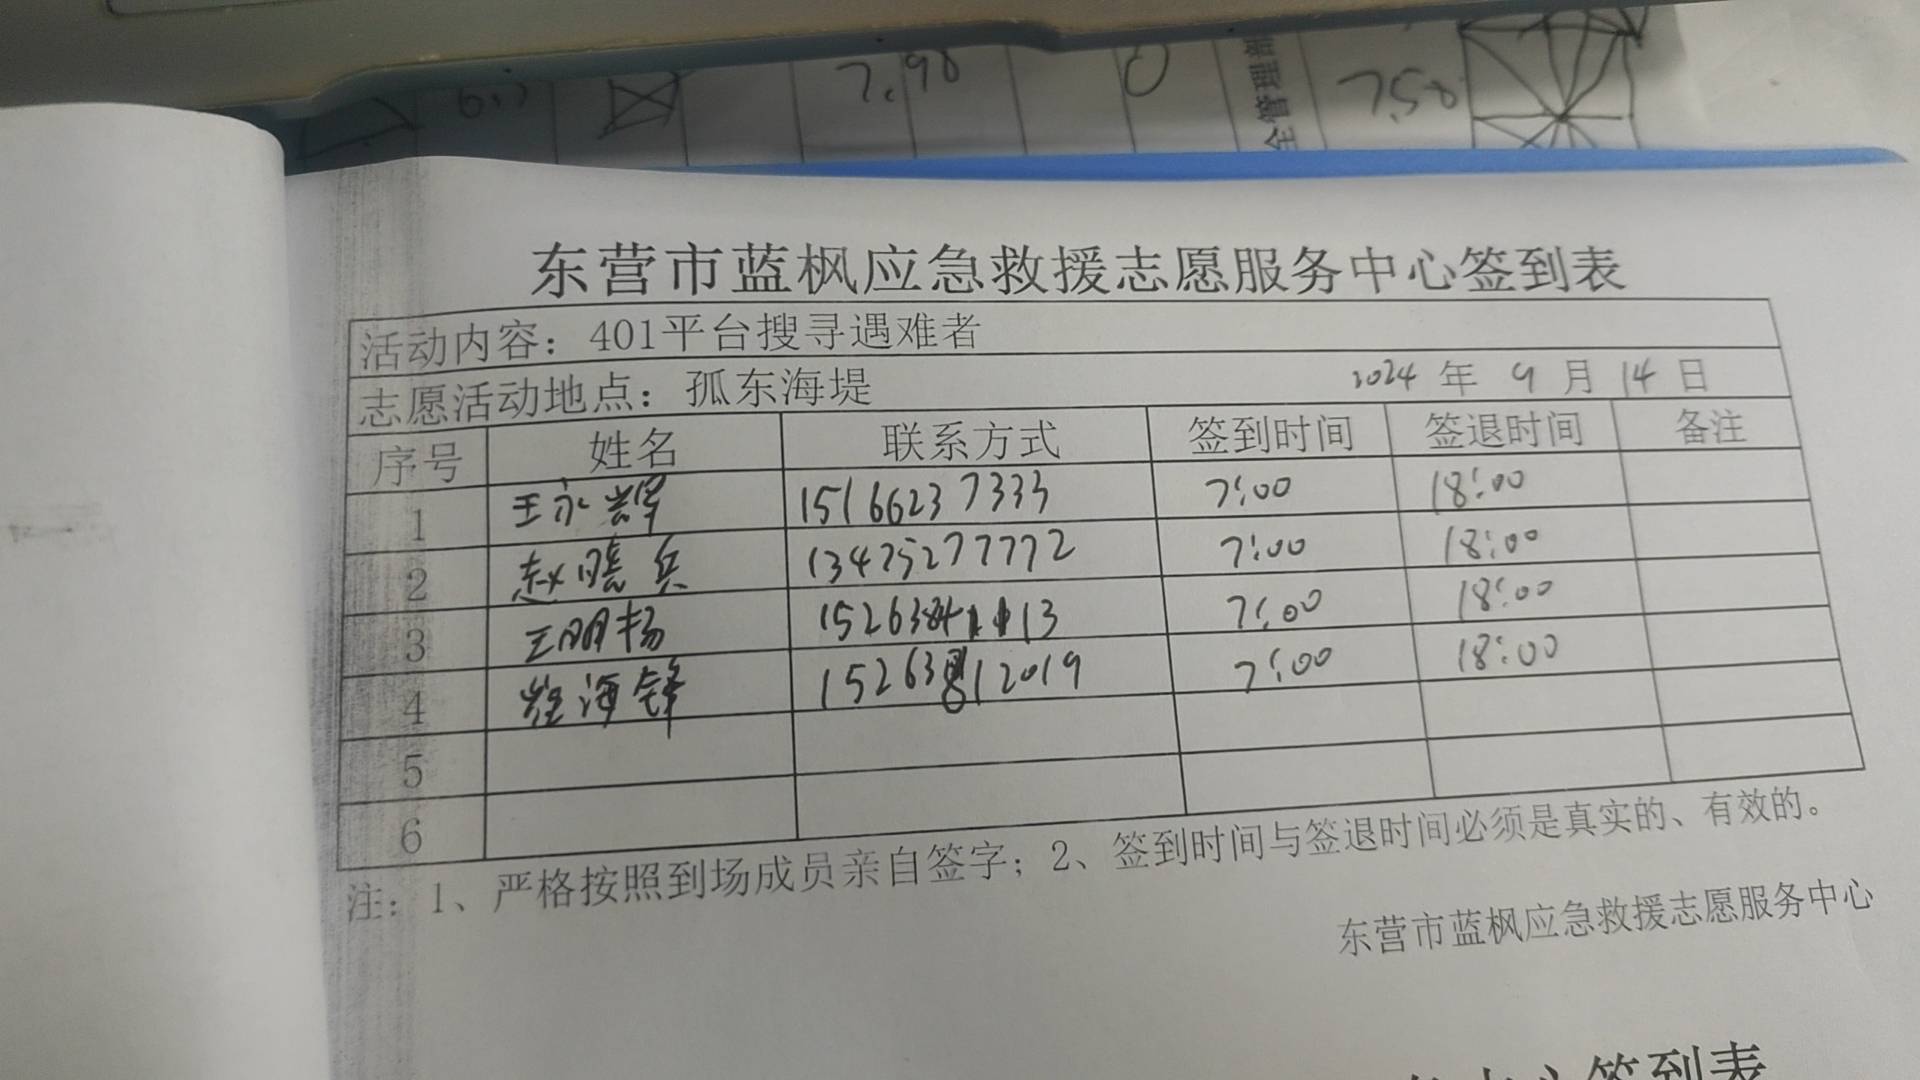 7.90
0
全管理部
7.50
东营市蓝枫应急救援志愿服务中心签到表
活动内容：401平台搜寻遇难者
志愿活动地点：孤东海堤 2024 年 9 月 14 日
序号 姓名 联系方式 签到时间 签退时间 备注
1 王永辉 15166237333 7:00 18:00
2 赵晓兵 13475277772 7:00 18:00
3 王明扬 7:00 18:00
4 海锋 15263812019 7:00 18:00
5
6
注：1、严格按照到场成员亲自签字；2、签到时间与签退时间必须是真实的、有效的。
东营市蓝枫应急救援志愿服务中心
签到表